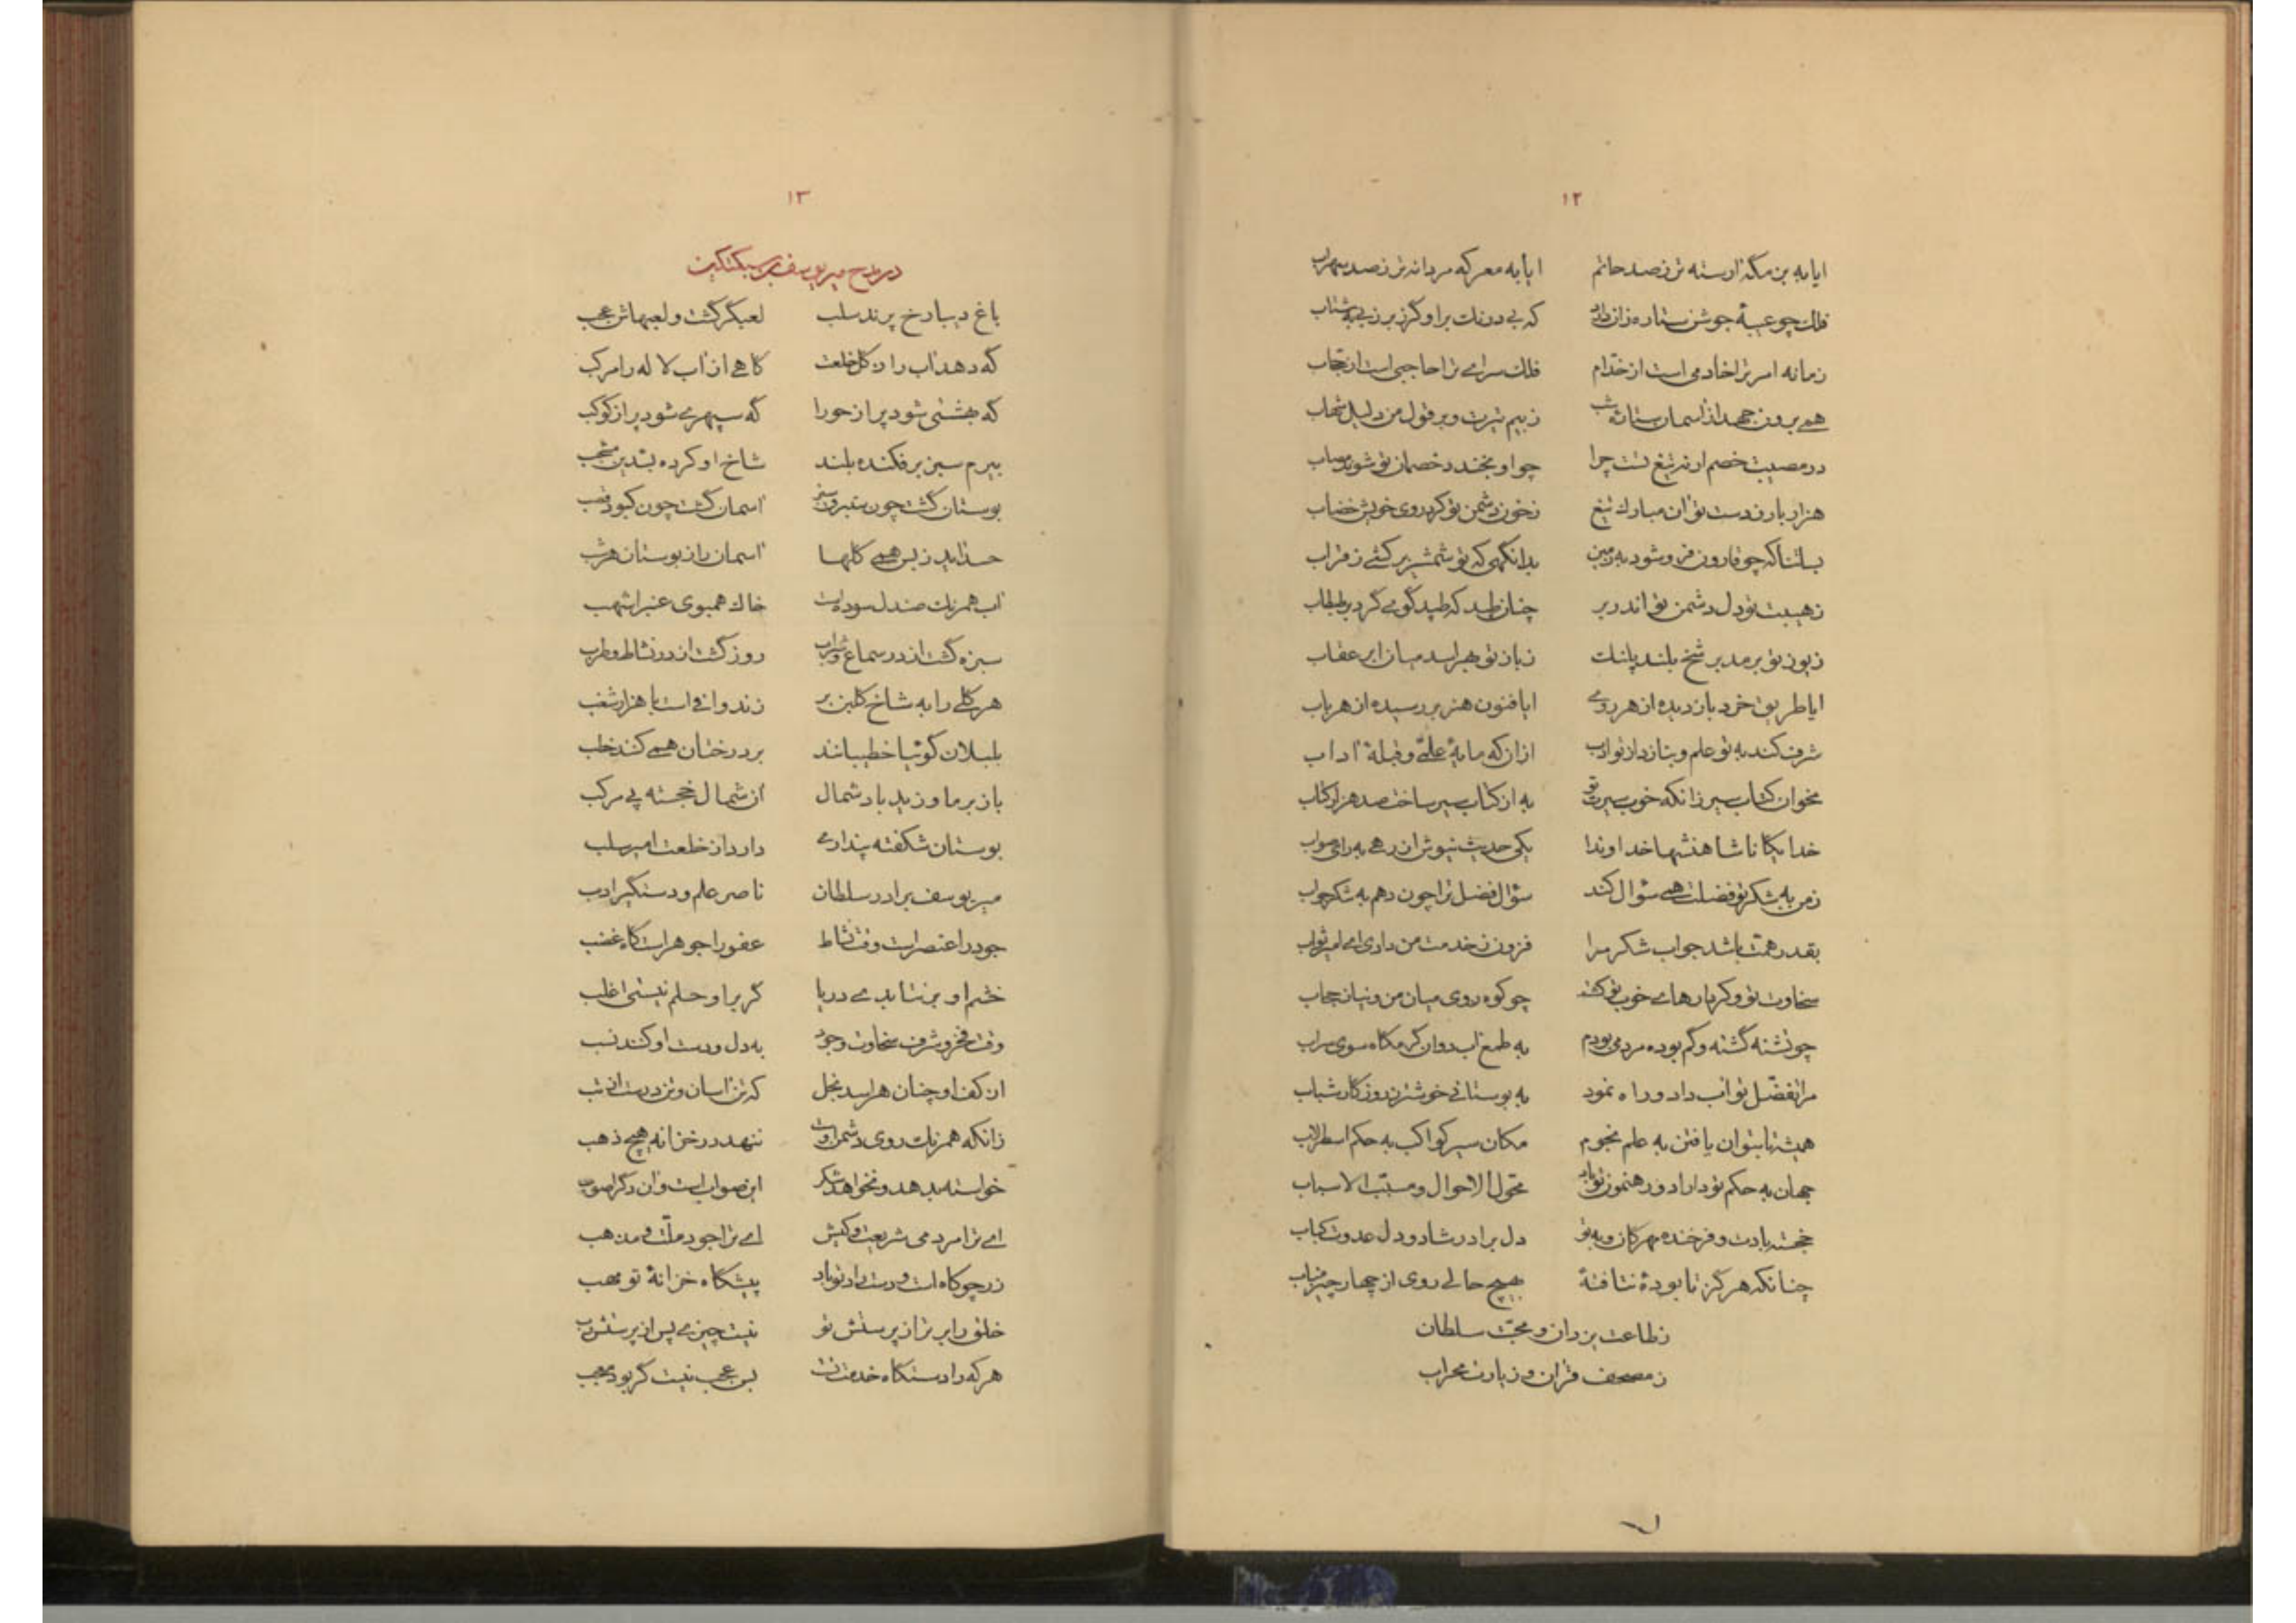 ۱۲
ایا به بزمگه آراسته تر ز صد حاتم ایا به معرکه مردانه تر ز صد سهراب
فلک چو عیبهٔ جوشن ستاره زان دارد که بی درنگ بر او گرز برزنی بشتاب
زمانه امر ترا خادمی است از خدّام فلک سرای ترا حاجبی است از حجّاب
همی برون جهد از آسمان ستاره شب ز بیم تیرت و بر قول من دلیل شهاب
در مصیبت خصم ار نه تیغ تست چرا چو او بخندد خصمان تو شوند مصاب
هزار بار ز دست تو آن مبارک تیغ ز خون دشمن تو کرد روی خویش خضاب
بسا تنا که چو قارون فرو شود به زمین بدانگهی که تو شمشیر برکشی ز قراب
ز هیبت تو دل دشمن تو اندر بر چنان طپد که طپد گوی گرد بر طبطاب
ز یوز تو برمد بر شخ بلند پلنگ ز باز تو بهراسد میان ابر عقاب
ایا طریق خرد باز دیده از هر روی ایا فنون هنر بررسیده از هر باب
شرف کند به تو علم و بنازد از تو ادب ازآن که مایهٔ علمی و قبلهٔ آداب
نخوان کتاب سیر زانکه خوب سیرت تو به از کتاب سیر ساخت صد هزار کتاب
خدایگانا شاهنشها خداوندا یکی حدیث نیوش از رهی به رای صواب
ز من به شکر تو فضلت همی سؤال کند سؤال فضل ترا چون دهم به شکر جواب
بقدر همّت باشد جواب شکر مرا فزون ز خدمت من دادی ای امیر ثواب
سخاوت تو و کردارهای خوب تو کشد چو کوه روی میان من و نیاز حجاب
چو تشنه گشته و گم بوده مردمی بودم به طمع آب روان گرمگاه سوی سراب
مرا تفضّل تو آب داد و راه نمود به بوستانی خوشتر ز روزگار شباب
همیشه تا بتوان یافتن به علم نجوم مکان سیر کواکب به حکم اسطرلاب
جهان به حکم تو داراد و رهنمون تو باد محوّل الاحوال و مسبّب الاسباب
خجسته بادت و فرخنده مهرگان و به تو دل برادر شاد و دل عدوت کباب
چنانکه هرگز تا بودهٔ نتافتهٔ بهیچ حالی روی از چهار چیز متاب
ز طاعت یزدان و محبّت سلطان
ز مصحف قرآن و زیارت محراب
۱۳
در مدح میر یوسف بن سبکتکین
باغ دیبا رخ پرند سلب لعبگر گشت و لعبهاش عجب
گه دهد آب را ز گل خلعت گاهی از آب لاله را مرکب
گه بهشتی شود پر از حورا گه سپهری شود پر از کوکب
بیرم سبز برفکنده بلند شاخ او کرده بسدین مشجب
بوستان گشت چون ستبرق سبز آسمان گشت چون کبود قصب
حسد آید ز بس همی گلها آسمان را ز بوستان هر شب
آب همرنگ صندل سوده است خاک همبوی عنبر اشهب
سبزه گشت از در سماع و شراب روز گشت از در نشاط و طرب
هر گلی را به شاخ گلبن بر زندوافی است با هزار شغب
بلبلان گوئیا خطیبانند بر درختان همی کنند خطب
باز بر ما وزید باد شمال آن شمال خجسته پی مرکب
بوستان شکفته پنداری دارد از خلعت امیر سلب
میر یوسف برادر سلطان ناصر علم و دستگیر ادب
جود را عنصر است وقت نشاط عفو را جوهر است گاه غضب
خشم او برنتابدی دریا گر بر او حلم نیستی اغلب
وقت فخر و شرف سخاوت و جود به دل و دست او کنند نسب
از کف او چنان هراسد بخل که تن آسان و تن درست از تب
زانکه همرنگ روی دشمن اوست ننهد در خزانه هیچ ذهب
خواسته بدهد و نخواهد شکر این صواب است و آن دگر اصوب
ای ترا مردمی شریعت و کیش ای ترا جود ملّت و مذهب
زر چو کاه است و دست راد تو باد پیشگاه خزانهٔ تو مهب
خلق را برتر از پرستش تو نیست چیزی پس از پرستش رب
هر که را دستگاه خدمت تست بس عجب نیست گر بود معجب